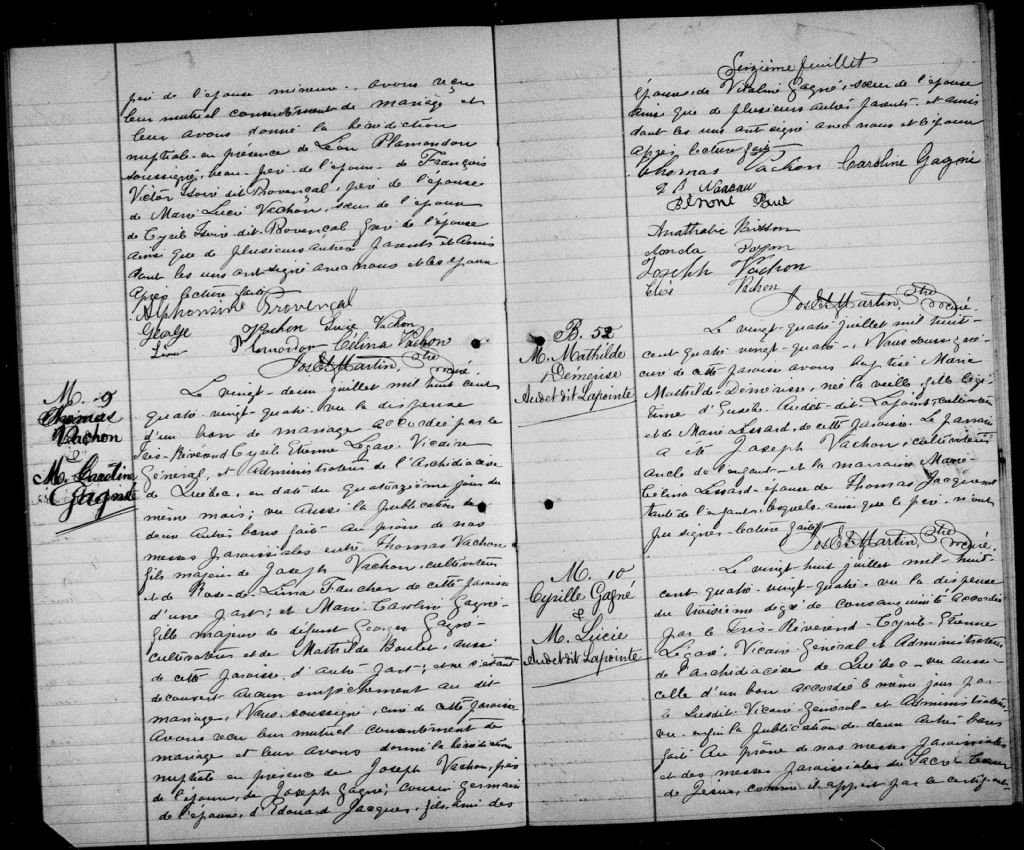 père de l'épouse mineure, avons reçu
leur mutuel consentement de mariage et
leur avons donné la bénédiction
nuptiale en présence de Léon Plamondon
soussigné, beau-père de l'époux, de François
Victor Isoir dit Provençal, père de l'épouse
de Marie Lucie Vachon, sœur de l'époux
de Cyrile Isoir dit Provençal frère de l'épouse
ainsi que de plusieurs autres parents et amis
dont les uns ont signé avec nous et les époux
Après lecture faite
Alphonsine Provençal
George Vachon Lucie Vachon
Léon Plamondon Célina Vachon
Jos Et Martin, Ptre curé.
M. 9
Thomas
Vachon
&
M. Caroline
Gagné
Le vingt-deux juillet mil huit cent
quatre-vingt-quatre vu la dispense
d'un ban de mariage accordée par le
Très-Révérend Cyrile Etienne Legaré Vicaire
Général, et Administrateur de l'Archidiocèse
de Québec, en date du quatorzième jour du
même mois; vu aussi la publication de
deux autres bans faite au prône de nos
messes paroissiales entre Thomas Vachon
fils majeur de Joseph Vachon, cultivateur
et de Rose-de-Lima Faucher de cette paroisse
d'une part; et Marie-Caroline Gagné
fille majeure de défunt Georges Gagné
cultivateur et de Mathilde Boulet, aussi
de cette paroisse, d'autre part; et ne s'étant
découvert aucun empêchement au dit
mariage, Nous, soussigné, curé de cette paroisse
avons reçu leur mutuel consentement de
mariage et leur avons donné la bénédiction
nuptiale en présence de Joseph Vachon, père
de l'époux, de Joseph Gagné, cousin germain
de l'épouse, d'Edouard Jacques, fils, ami des
Seizième feuillet
époux, de Vitaline Gagné, sœur de l'épouse
ainsi que de plusieurs autres parents et amis
dont les uns ont signé avec nous et l'époux
Après lecture faite
Thomas Vachon Caroline Gagné
J B Nadeau
Bénoni Paré
Anathalie Bisson
Joseph Vachon
Cloé Vachon
Jos Et Martin, Ptre curé.
B. 52
M. Mathilde
Démerise
Audet dit Lapointe
Le vingt-quatre juillet mil huit-
cent quatre-vingt-quatre, Nous soussigné
curé de cette paroisse avons baptisé Marie
Mathilde Démerise, née la veille, fille légi-
time d'Eusèbe Audet-dit-Lapointe, cultivateur
et de Marie Lessard, de cette paroisse. Le parrain
a été Joseph Vachon, cultivateur
oncle de l'enfant et la marraine Marie
Célina Lessard épouse de Thomas Jacques
tante de l'enfant, lesquels ainsi que le père n'ont
pu signer. Lecture faite
Jos Et Martin, Ptre curé.
M. 10
Cyrille Gagné
&
M. Lucie
Audet dit Lapointe
Le vingt-huit juillet mil-huit-
cent quatre-vingt-quatre vu la dispense
du troisième degré de consanguinité accordée
par le Très-Révérend Cyrile-Etienne
Legaré, Vicaire-Général et Administrateur
de l'archidiocèse de Québec vu aussi
celle d'un ban accordée le même jour par
le susdit Vicaire-Général et Administrateur
vu enfin la publication de deux autres bans
faite au prône de nos messes paroissiales
et des messes paroissiales du Sacré-Cœur
de Jésus, comme il appert par le certificat